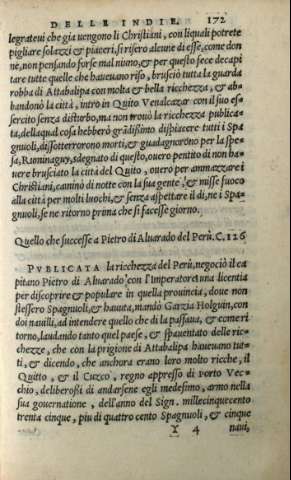 DELLE INDIE. 172
legrateui che gia uengono li Christiani, con liquali potrete
pigliare solazzi & piaceri, si risero alcune di esse, come don
ne, non pensando forse mal niuno, & per questo fece decapi
tare tutte quelle che haueuano riso, brusciò tutta la guarda
robba di Attabalipa con molta & bella ricchezza, & ab-
bandonò la città, intrò in Quito Venalcazar con il suo es-
sercito senza disturbo, ma non trouò la ricchezza publica-
ta, della qual cosa hebberò grādissimo dispiacere tutti i Spa
gnuoli, dissotterrorono morti, & guadagnorono per la spe-
sa, Rominaguy, sdegnato di questo, ouero pentito di non ha-
uere brusciato la città del Quito, ouero per ammazzare i
Christiani, caminò di notte con la sua gente, & misse fuoco
alla città per molti luochi, & senza aspettare il di, ne i Spa-
gnuoli, se ne ritorno prima che si facesse giorno.
Quello che successe a Pietro di Aluarado del Perù. C. 126
PVBLICATA la ricchezza del Perù, negociò il ca
pitano Pietro di Aluarado con l'Imperatore una licentia
per discoprire & populare in quella prouincia, doue non
stessero Spagnuoli, & hauuta, mandò Garzia Holguin, con
doi nauilli, ad intendere quello che di la passaua, & come ri
torno, laudando tanto quel paese, & spauentato delle ric-
chezze, che con la prigione di Attabalipa haueuano tut-
ti, & dicendo, che anchora erano loro molto ricche, il
Quitto, & il Cuzco, regno appresso di Porto Vec-
chio, deliberossi di andarsene egli medesimo, armò nella
sua gouernatione, dell'anno del Sign. millecinquecento
trenta cinque, piu di quattro cento Spagnuoli, & cinque
Y 4 naui,